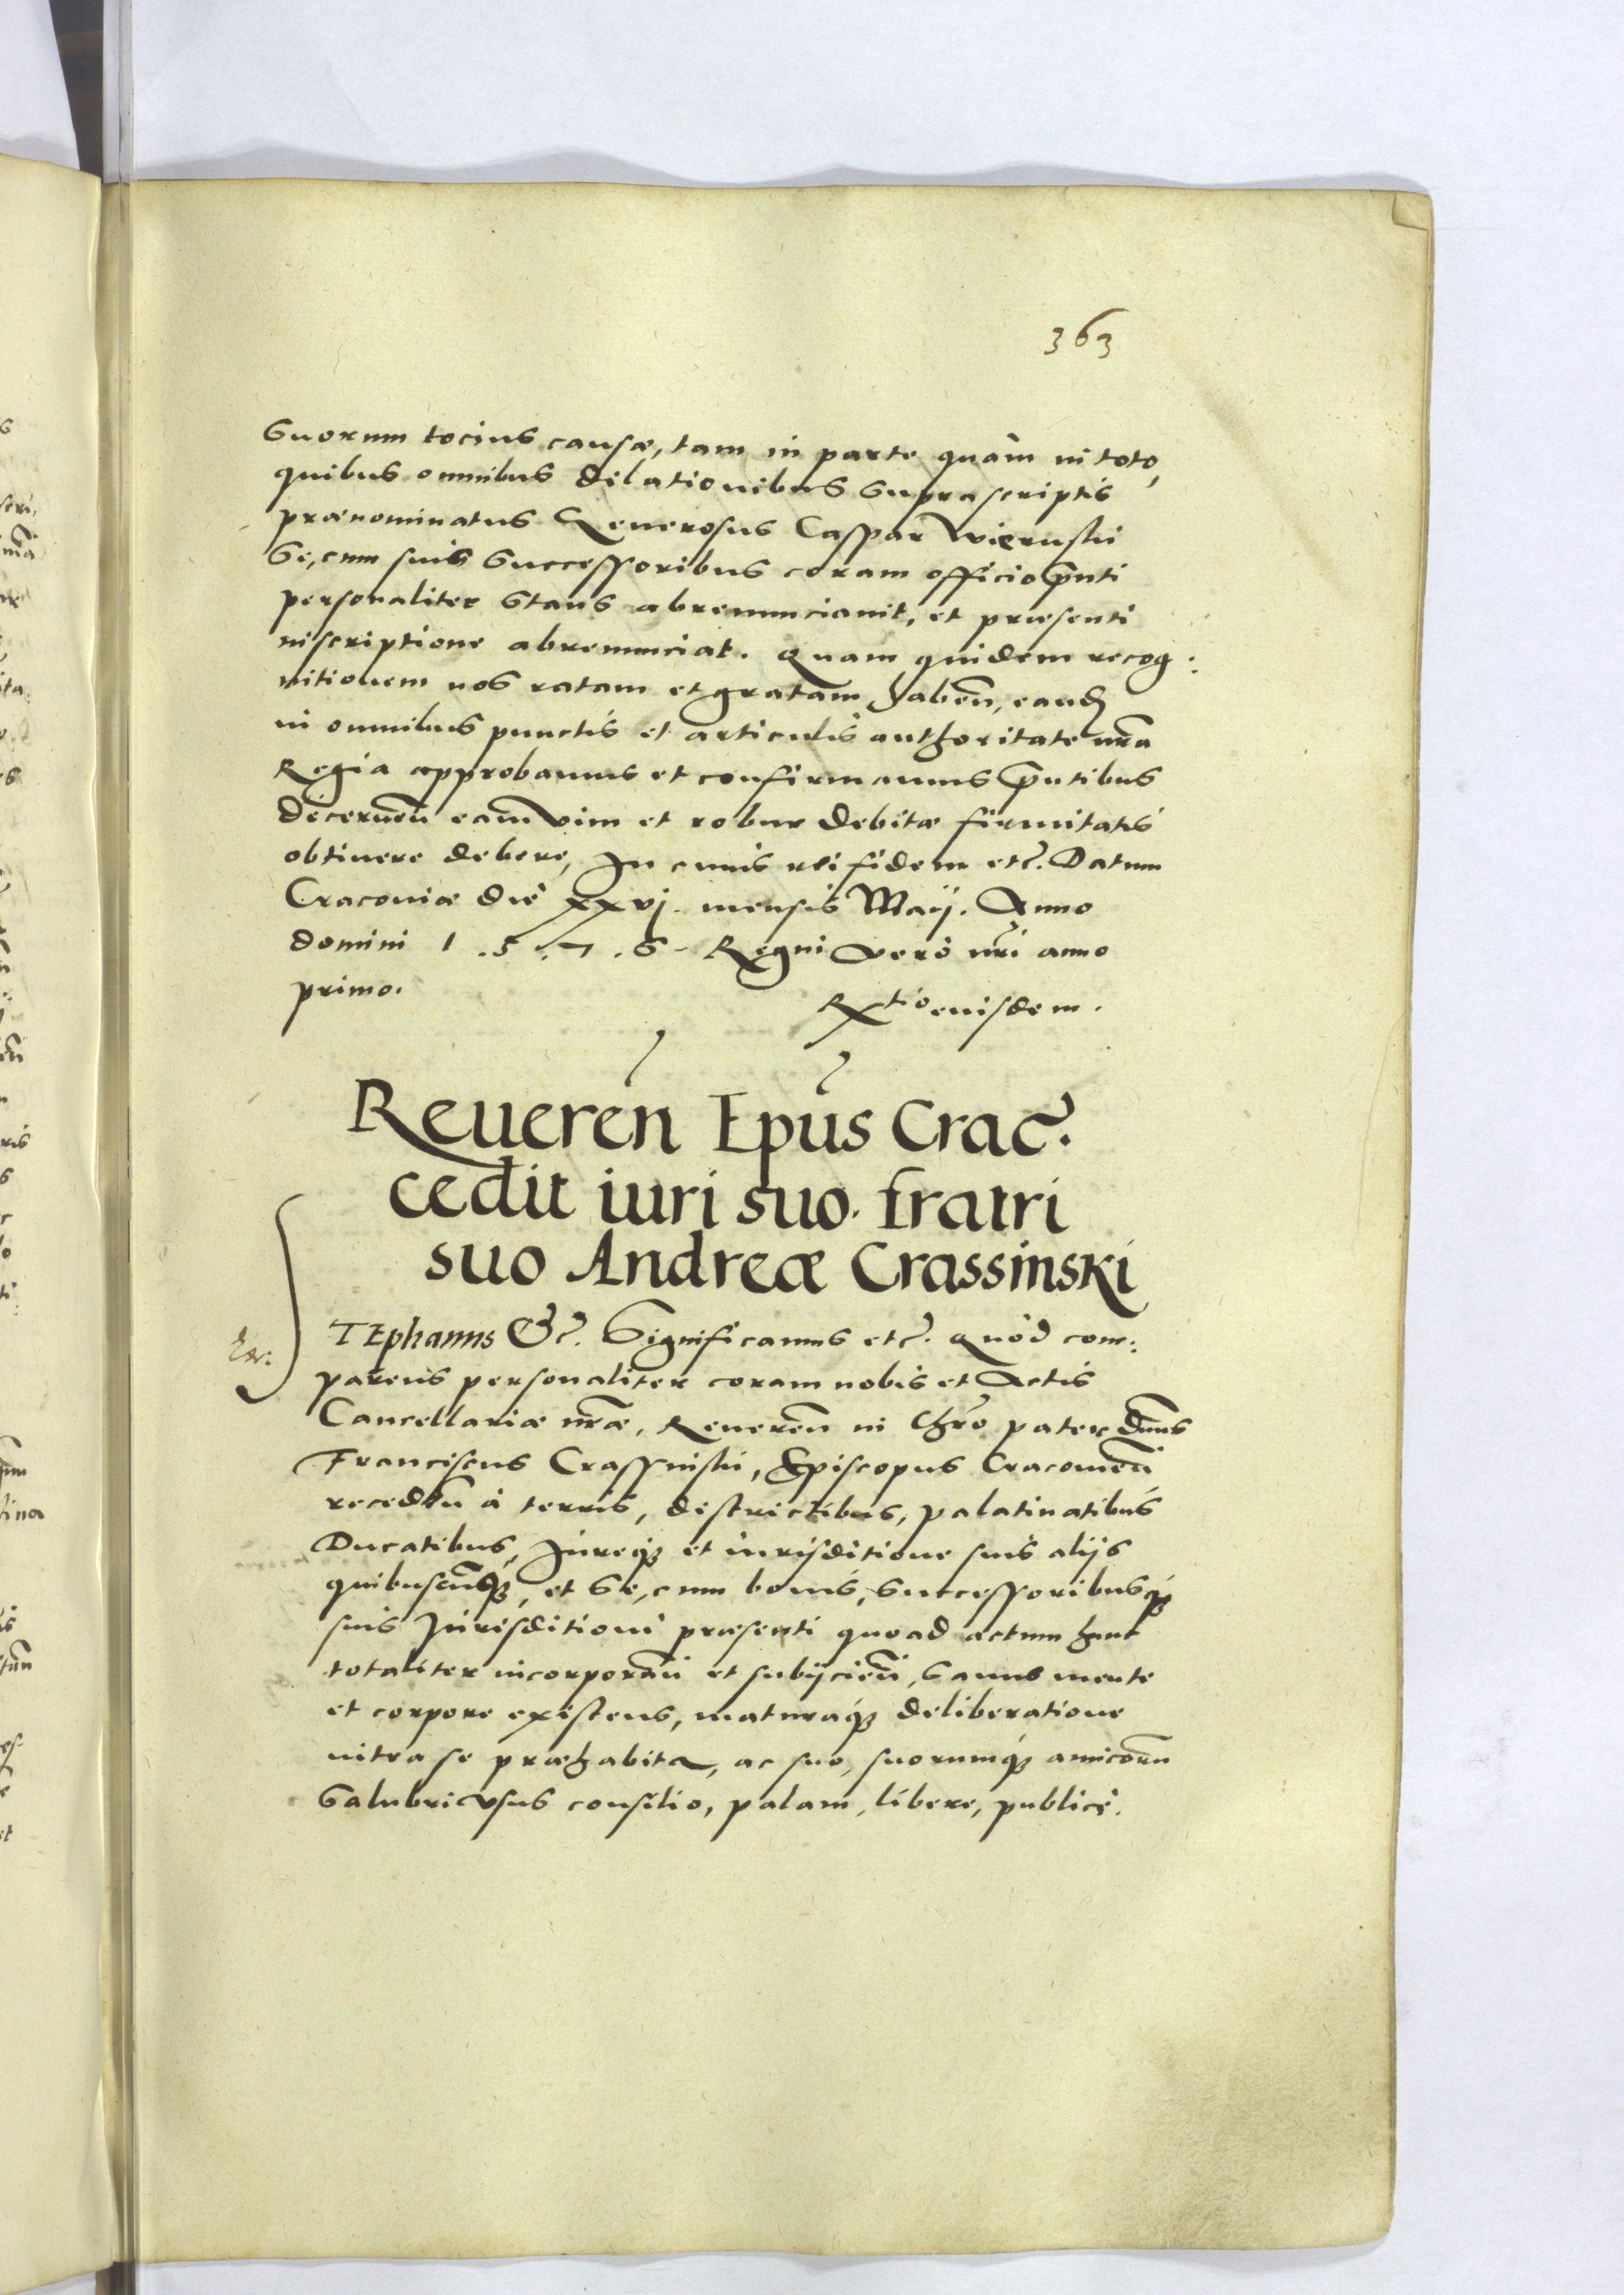 363
suorum tocius causæ, tam in parte quàm in toto,
quibus omnibus dilationibus suprascriptis
prænominatus Generosus Caspar Wierusski
se, cum suis successoribus coram officio pñti
personaliter stans abrenunciauit, et præsenti
inscriptione abrenunciat. Quam quidem recog:
nitionem nos ratam et gratam habeñ, eandē
in omnibus punctis et articulis authoritate nr̃a
Regia approbamus et confirmamus pñtibus
decerneñ eam vim et robur debitæ firmitatis
obtinere debere, In cuius rei fidem etc̃. Datum
Cracouiæ die xxvj. mensis Maij. Anno
domini 1.5.7.6. Regni verò nr̃i anno
primo.
Rtio eiusdem.
Reueren Epũs Crac̃.
cedit iuri suo fratri
suo Andreæ Crassinski
STEphanus &c̃. Significamus etc̃. Quòd com:
parens personaliter coram nobis et Actis
Cancellariæ nr̃æ, Reuereñ in Chr̃o pater dñus
Franciscus Crassinski, Episcopus Cracouieñ
recedeñ à terris, districtibus, palatinatibus
Ducatibus, Jureq; et iurisditione suis alijs
quibuscũq;, et se, cum bonis, successoribusq;
suis Jurisditioni præsenti quoad actum hunc
totaliter incorporañ et subijcieñ, sanus mente
et corpore existens, maturaq; deliberatione
intra se præhabita, ac suo, suorumq; amicorũ
salubri vsus consilio, palam, libere, publicè.